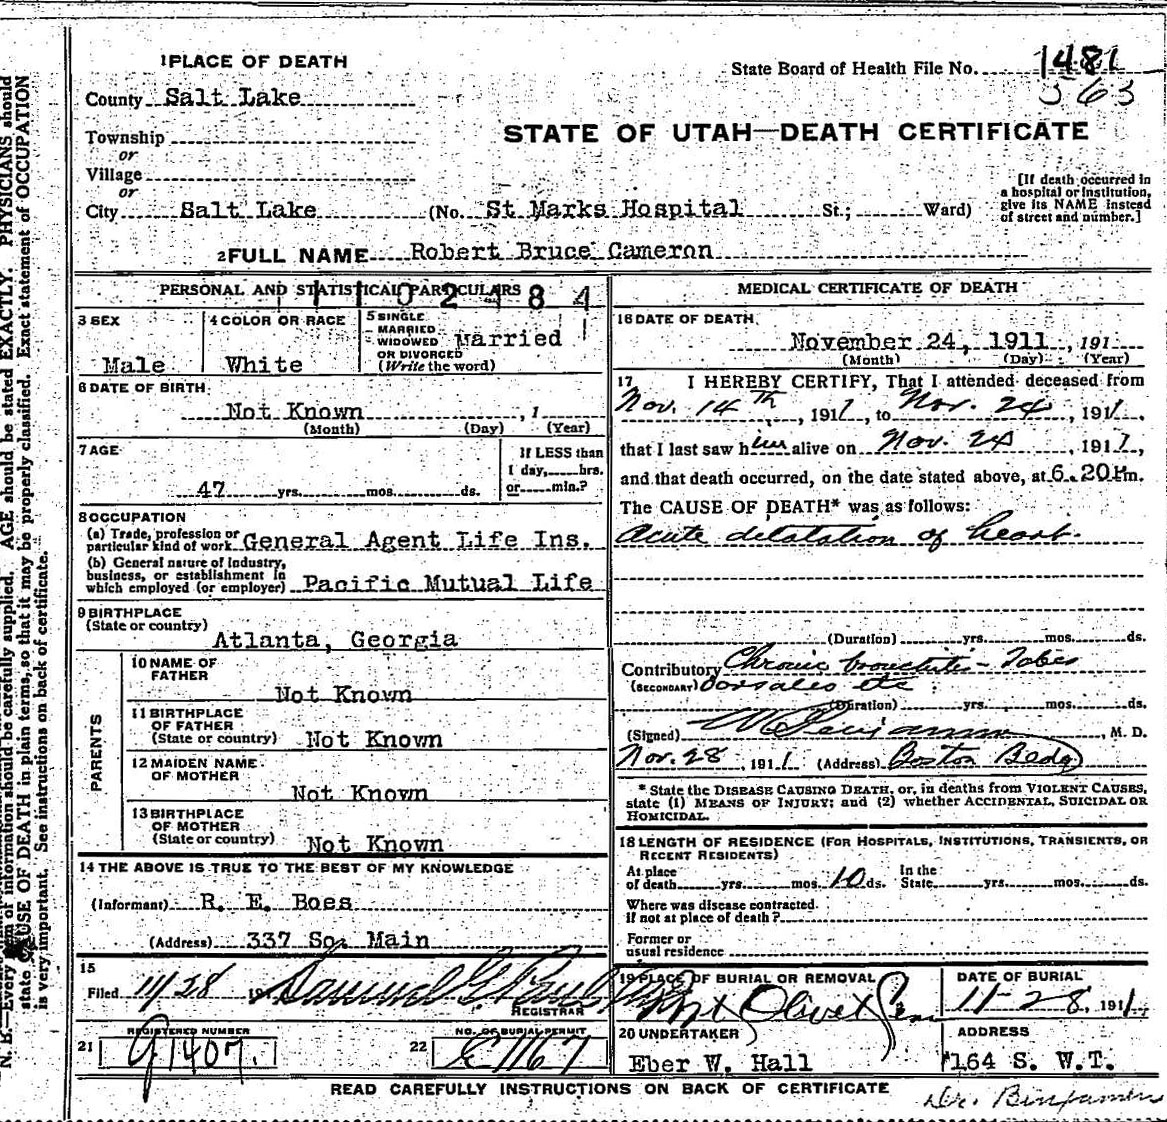 1 PLACE OF DEATH
State Board of Health File No. 1481
563
County Salt Lake
STATE OF UTAH—DEATH CERTIFICATE
Township
or
Village
or
City Salt Lake (No. St Marks Hospital St.; Ward)
[If death occurred in
a hospital or institution,
give its NAME instead
of street and number.]
2 FULL NAME Robert Bruce Cameron
PERSONAL AND STATISTICAL PARTICULARS
3 SEX
Male
4 COLOR OR RACE
White
5 SINGLE
MARRIED
WIDOWED
OR DIVORCED
(Write the word)
Married
6 DATE OF BIRTH
Not Known , 1
(Month) (Day) (Year)
7 AGE
47 yrs. mos. ds.
If LESS than
1 day, hrs.
or min.?
8 OCCUPATION
(a) Trade, profession or
particular kind of work General Agent Life Ins.
(b) General nature of Industry,
business, or establishment in
which employed (or employer) Pacific Mutual Life
9 BIRTHPLACE
(State or country)
Atlanta, Georgia
PARENTS
10 NAME OF
FATHER
Not Known
11 BIRTHPLACE
OF FATHER
(State or country) Not Known
12 MAIDEN NAME
OF MOTHER
Not Known
13 BIRTHPLACE
OF MOTHER
(State or country) Not Known
14 THE ABOVE IS TRUE TO THE BEST OF MY KNOWLEDGE
(Informant) R. E. Boes
(Address) 337 So. Main
15
Filed 11/28 19 Samuel G.
REGISTRAR
21 REGISTERED NUMBER
91407.
22 NO. OF BURIAL PERMIT
1167
MEDICAL CERTIFICATE OF DEATH
16 DATE OF DEATH
November 24, 1911 , 191
(Month) (Day) (Year)
17 I HEREBY CERTIFY, That I attended deceased from
Nov. 14th , 1911, to Nov. 24 , 1911,
that I last saw him alive on Nov. 24 , 1911,
and that death occurred, on the date stated above, at 6.20 P.m.
The CAUSE OF DEATH* was as follows:
Acute dilatation of heart.
(Duration) yrs. mos. ds.
Contributory Chronic bronchitis - Tabes
(SECONDARY) Dorsales etc
(Duration) yrs. mos. ds.
(Signed) , M. D.
Nov. 28 , 1911. (Address) Boston Bldg
* State the DISEASE CAUSING DEATH, or, in deaths from VIOLENT CAUSES,
state (1) MEANS OF INJURY; and (2) whether ACCIDENTAL, SUICIDAL OR
HOMICIDAL.
18 LENGTH OF RESIDENCE (FOR HOSPITALS, INSTITUTIONS, TRANSIENTS, OR
RECENT RESIDENTS)
At place
of death yrs. mos. 10 ds. In the
State yrs. mos. ds.
Where was disease contracted
if not at place of death?
Former or
usual residence
19 PLACE OF BURIAL OR REMOVAL
Mt Olivet Cem
DATE OF BURIAL
11-28, 1911.
20 UNDERTAKER
Eber W. Hall
ADDRESS
164 S. W.T.
READ CAREFULLY INSTRUCTIONS ON BACK OF CERTIFICATE
Dr. Binjamen
N. B.—Every item of information should be carefully supplied. AGE should be stated EXACTLY. PHYSICIANS should
state CAUSE OF DEATH in plain terms, so that it may be properly classified. Exact statement of OCCUPATION
is very important. See instructions on back of certificate.